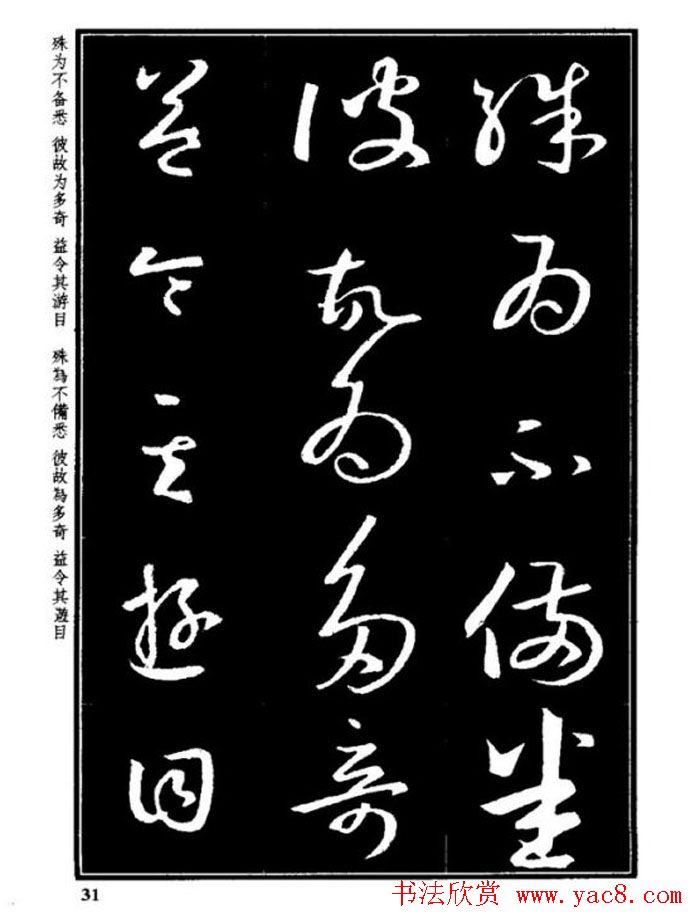 殊為不備悉
彼故為多奇
益令其遊目
殊为不备悉 彼故为多奇 益令其游目 殊為不備悉 彼故為多奇 益令其遊目
31
书法欣赏 www.yac8.com